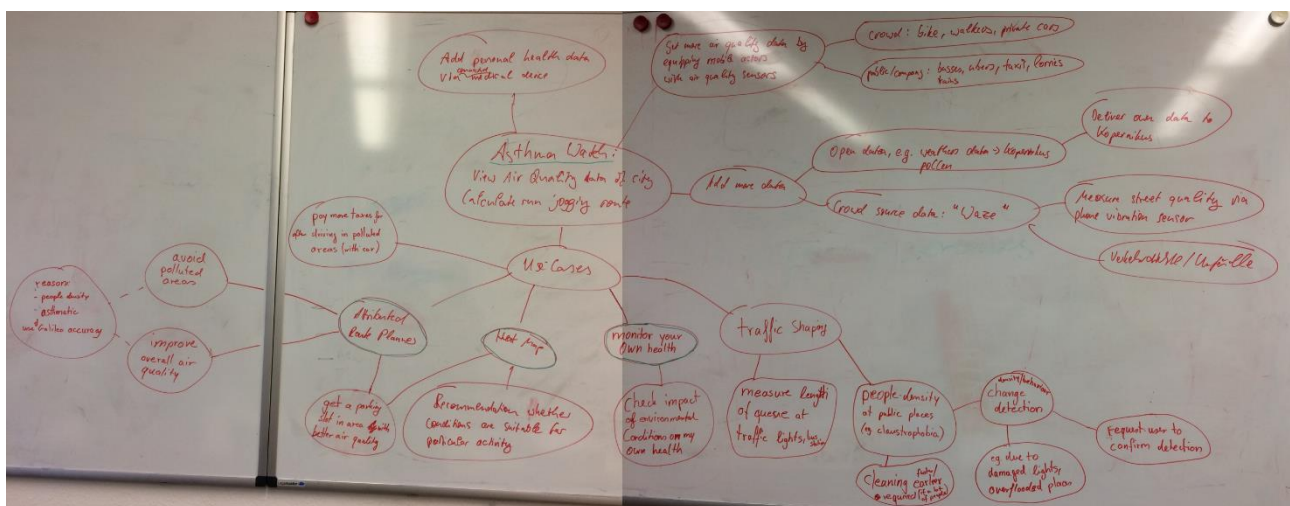 Add personal health data
via connected medical device
Get more air quality data by
equipping mobile actors
with air quality sensors
crowd: bike, walkers, private cars
public/company: busses, ubers, taxis, lorries
trains
Asthma Watch:
View Air Quality data of city
Calculate run jogging route
Add more data
Open data, e.g. weather data → Kopernikus
pollen
Deliver own data to
Kopernikus
Crowd source data: "Waze"
Measure street quality via
phone vibration sensor
/Unfälle
pay more taxes for
driving in polluted
areas (with car)
Use Cases
avoid
polluted
areas
reasons:
- people density
- asthmatic
use Galileo accuracy
improve
overall air
quality
Route Planner
Heat Map
monitor your
own health
traffic shaping
get a parking
slot in area with
better air quality
Recommendation whether
conditions are suitable for
particular activity
Check impact
of environmental
conditions on my
own health
measure length
of queue at
traffic lights, bus
people density
at public places
(eg claustrophobia)
change
detection
request user to
confirm detection
eg due to
damaged lights,
overflooded places
cleaning earlier
required